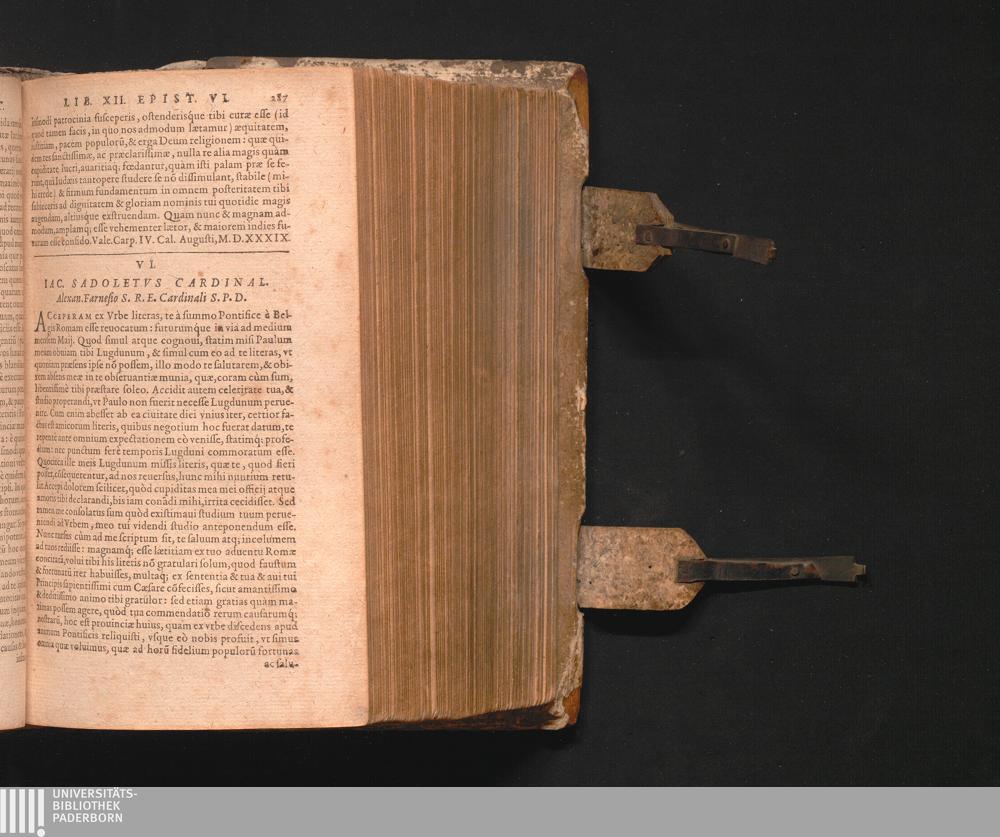 LIB. XII. EPIST. VI. 287
iusmodi patrocinia susceperis, ostenderisque tibi curæ esse (id
quod tamen facis, in quo nos admodum lætamur) æquitatem,
iustitiam, pacem populorū, & erga Deum religionem: quæ qui-
dem res sanctissimæ, ac præclarissimæ, nulla re alia magis quàm
cupiditate lucri, auaritiaq; fœdantur, quàm isti palam præ se fe-
runt, qui Iudæis tantopere studere se nō dissimulant, stabile (mi-
hi crede) & firmum fundamentum in omnem posteritatem tibi
subieceris ad dignitatem & gloriam nominis tui quotidie magis
augendam, altiusque exstruendam. Quam nunc & magnam ad-
modum, amplamq; esse vehementer lætor, & maiorem indies fu-
turam esse confido. Vale. Carp. IV. Cal. Augusti, M. D. XXXIX.
VI.
IAC. SADOLETVS CARDINAL.
Alexan. Farnesio S. R. E. Cardinali S. P. D.
ACCEPERAM ex Vrbe literas, te à summo Pontifice è Bel-
gis Romam esse reuocatum: futurumque in via ad medium
mensem Maij. Quod simul atque cognoui, statim misi Paulum
meum obuiam tibi Lugdunum, & simul cum eo ad te literas, vt
quoniam præsens ipse nō possem, illo modo te salutarem, & obi-
rem absens meæ in te obseruantiæ munia, quæ, coram cùm sum,
libentissimè tibi præstare soleo. Accidit autem celeritate tua, &
studio properandi, vt Paulo non fuerit necesse Lugdunum perue-
nire. Cum enim abesset ab ea ciuitate diei vnius iter, certior fa-
ctus est amicorum literis, quibus negotium hoc fuerat datum, te
repente ante omnium expectationem eò venisse, statimq; profe-
ctum: nec punctum ferè temporis Lugduni commoratum esse.
Quocirca ille meis Lugdunum missis literis, quæ te, quod fieri
posset, cōsequerentur, ad nos reuersus, hunc mihi nuntium retu-
lit. Accepi dolorem scilicet, quòd cupiditas mea mei officij atque
amoris tibi declarandi, bis iam conādi mihi, irrita cecidisset. Sed
tamen me consolatus sum quòd existimaui studium tuum perue-
niendi ad Vrbem, meo tui videndi studio anteponendum esse.
Nunc rursus cùm ad me scriptum sit, te saluum atq; incolumem
ad tuos redisse: magnamq; esse lætitiam ex tuo aduentu Romæ
concitatā, volui tibi his literis nō gratulari solum, quod faustum
& fortunatū iter habuisses, multaq; ex sententia & tua & aui tui
Principis sapientissimi cum Cæsare cōfecisses, sicut amantissimo
& deditissimo animo tibi gratulor: sed etiam gratias quàm ma-
ximas possem agere, quòd tua commendatiō rerum causarumq;
nostrarū, hoc est prouinciæ huius, quam ex vrbe discedens apud
auunum Pontificis reliquisti, vsque eò nobis profuit, vt simus
omnia quæ voluimus, quæ ad horū fidelium populorū fortunas
ac salu-
UNIVERSITÄTS-
BIBLIOTHEK
PADERBORN